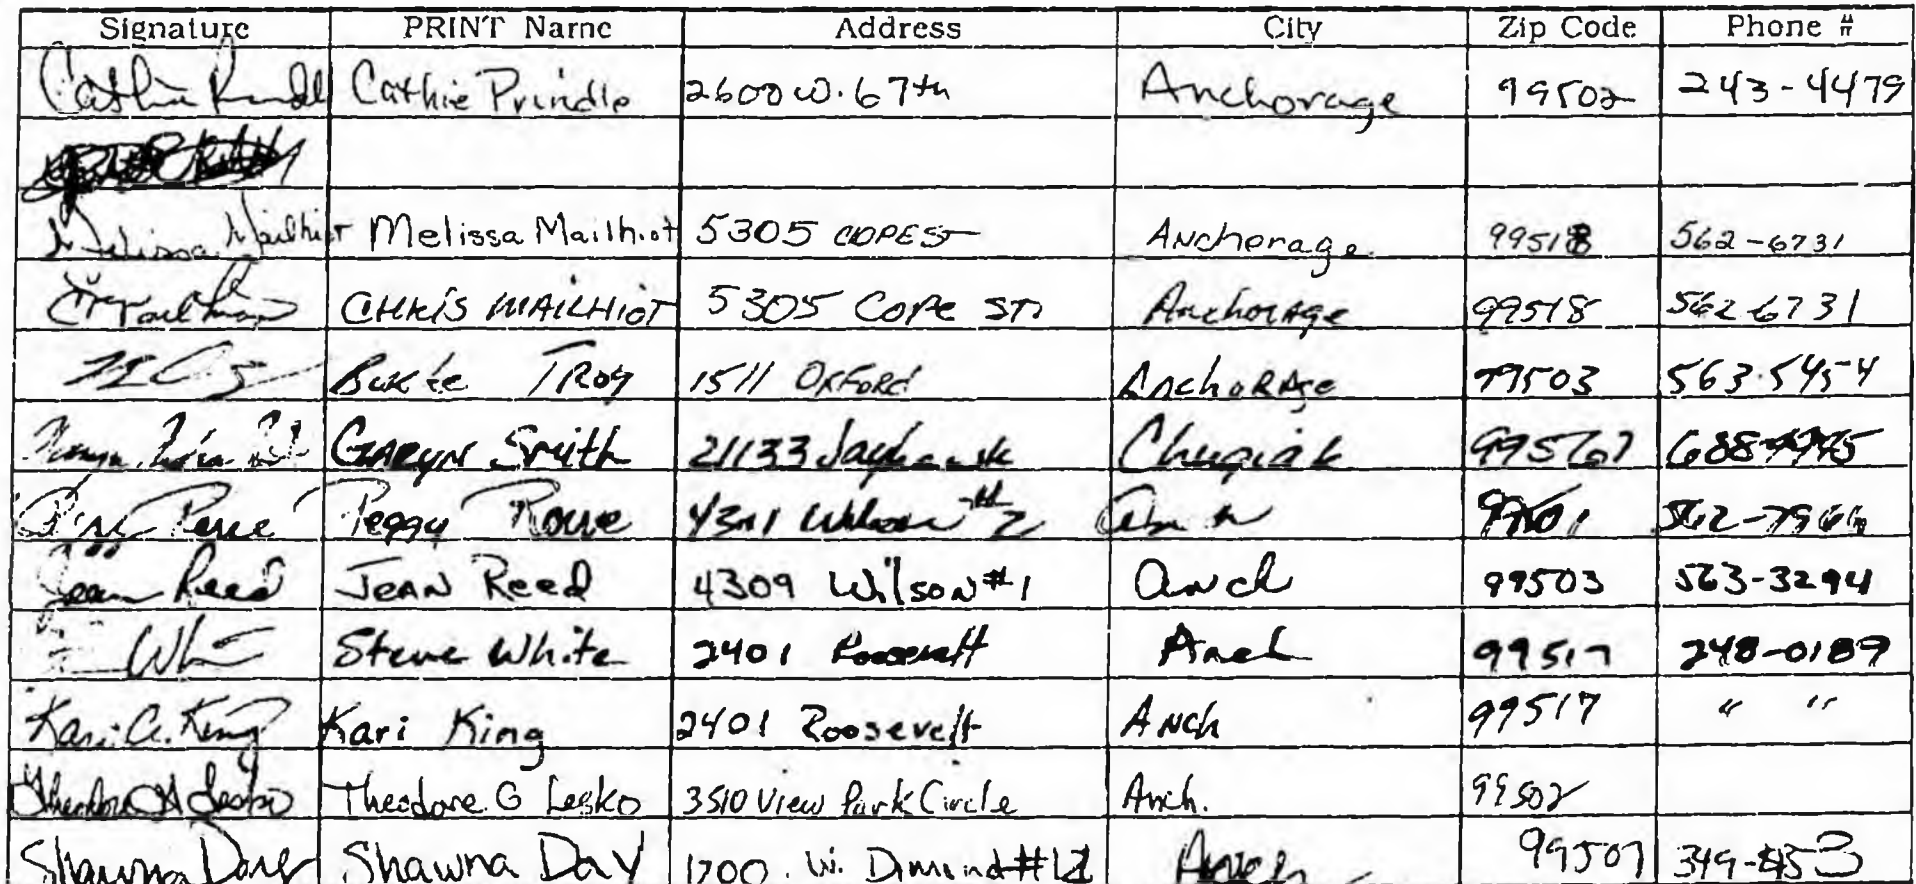 Signature PRINT Name Address City Zip Code Phone #
Cathie Prindle Cathie Prindle 2600 W. 67th Anchorage 99502 243-4479
Melissa Mailhiot Melissa Mailhiot 5305 COPE ST Anchorage 99518 562-6731
CHRIS MAILHIOT 5305 COPE ST Anchorage 99518 562 6731
TROY 1511 OXFORD AnchoRAge 99503 563-5454
Smith 21133 Chugiak 99567
Peggy Rowe #2
Jean Reed JEAN Reed 4309 Wilson #1 Anch 99503 563-3294
Steve White 2401 Roosevelt Anch 99517 248-0189
Kari A. King Kari King 2401 Roosevelt Anch 99517 " "
Theodore G Lesko Theodore G Lesko 3510 View Park Circle Anch. 99502
Shawna Day Shawna Day 1200 W. Dimond Anch